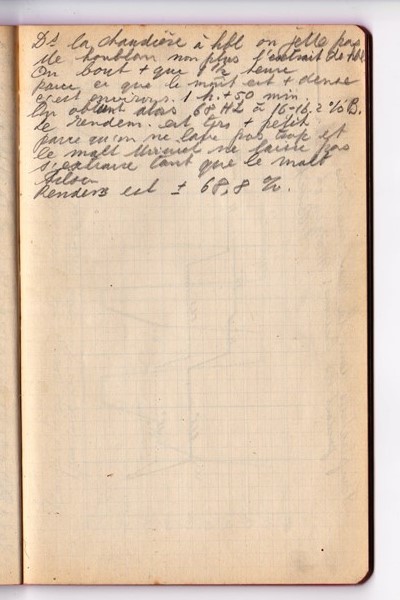 Ds la chaudière à hbl on jette pas
de houblon non plus l'extrait de
On bout + que 1½ heure
parce ce que le moût est + dense
c'est environ 1 h. + 50 min.
On obtient alors 68 HL à 16-16.2 % B.
Le rendem. est tjrs + petit
parce qu'on ne lave pas trop et
le malt Munich ne laisse pas
s'extraire tant que le malt
Pilsen
Rendem est ± 68,8 %.